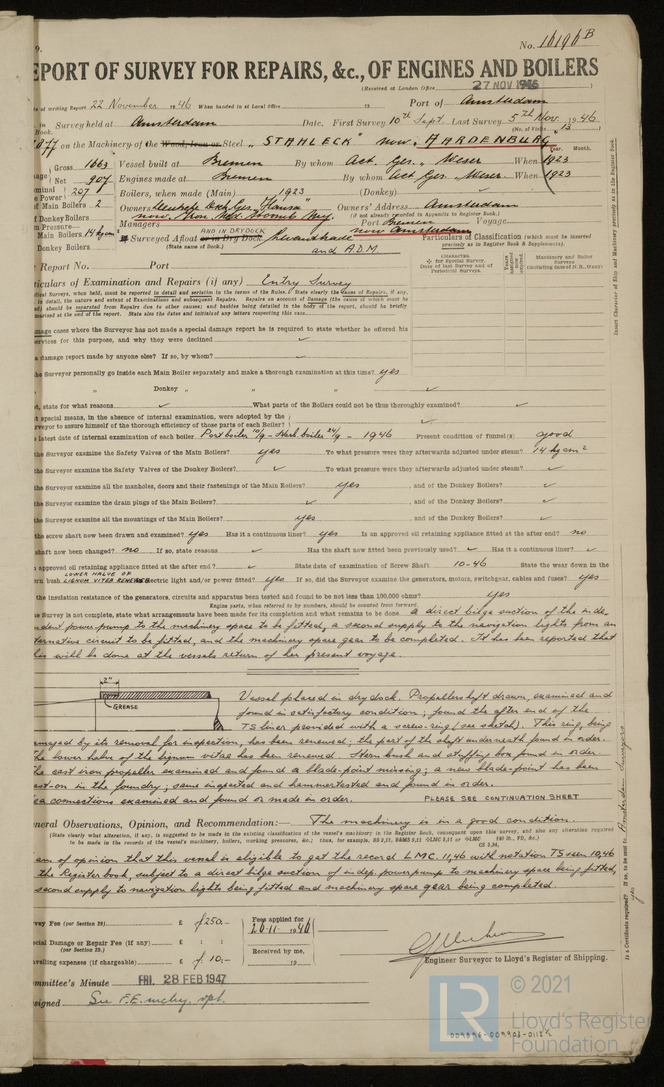 No. 16196 B
EPORT OF SURVEY FOR REPAIRS, &c., OF ENGINES AND BOILERS
(Received at London Office 27 NOV 1946 )
of writing Report 22 November 1946 When handed in at Local Office 19 Port of Amsterdam
Survey held at Amsterdam Date, First Survey 10th Sept. Last Survey 5th Nov 1946
Book. (No. of Visits 13 )
on the Machinery of the Wood, Iron or Steel "STAHLECK" now "HARDENBURG"
Year. Month.
Gross 1663 Vessel built at Bremen By whom Act. Ges. "Weser" When 1923
Net 907 Engines made at Bremen By whom Act Ges Weser When 1923
Power 207 Boilers, when made (Main) 1923 (Donkey)
of Main Boilers 2 Owners Owners' Address Amsterdam
(if not already recorded in Appendix to Register Book.)
of Donkey Boilers Managers Port Bremen Voyage
now Amsterdam
Pressure
Main Boilers 14 kg cm² Surveyed Afloat or in Dry Dock AND IN DRYDOCK
(State name of Dock.) and A.D.M.
Donkey Boilers
Particulars of Classification (which must be inserted
precisely as in Register Book & Supplements).
Report No. Port
ticulars of Examination and Repairs (if any) Entry Survey
mage cases where the Surveyor has not made a special damage report he is required to state whether he offered his
services for this purpose, and why they were declined
damage report made by anyone else? If so, by whom?
he Surveyor personally go inside each Main Boiler separately and make a thorough examination at this time? yes
" Donkey " " " "
, state for what reasons What parts of the Boilers could not be thus thoroughly examined?
special means, in the absence of internal examination, were adopted by the
rveyor to assure himself of the thorough efficiency of those parts of each Boiler?
latest date of internal examination of each boiler Port boiler 10/9 - Starb. boiler 24/9 - 1946 Present condition of funnel(s) good
he Surveyor examine the Safety Valves of the Main Boilers? yes To what pressure were they afterwards adjusted under steam? 14 kg cm²
he Surveyor examine the Safety Valves of the Donkey Boilers? To what pressure were they afterwards adjusted under steam?
he Surveyor examine all the manholes, doors and their fastenings of the Main Boilers? yes , and of the Donkey Boilers?
he Surveyor examine the drain plugs of the Main Boilers? , and of the Donkey Boilers?
he Surveyor examine all the mountings of the Main Boilers? yes , and of the Donkey Boilers?
he screw shaft now been drawn and examined? yes Has it a continuous liner? yes Is an approved oil retaining appliance fitted at the after end? no
shaft now been changed? no If so, state reasons Has the shaft now fitted been previously used? Has it a continuous liner?
approved oil retaining appliance fitted at the after end? State date of examination of Screw Shaft 10-46 State the wear down in the
LOWER HALVE OF
rn bush LIGNUM VITAE RENEWED electric light and/or power fitted? yes If so, did the Surveyor examine the generators, motors, switchgear, cables and fuses? yes
the insulation resistance of the generators, circuits and apparatus been tested and found to be not less than 100,000 ohms? yes
Engine parts, when referred to by numbers, should be counted from forward.
e Survey is not complete, state what arrangements have been made for its completion and what remains to be done A direct bilge suction of the inde-
ndent powerpump to the machinery space to be fitted, a second supply to the navigation lights from an
ternative circuit to be fitted, and the machinery spare gear to be completed. It has been reported that
his will be done at the vessels return of her present voyage.
2"
GREASE
Vessel placed in drydock. Propellershaft drawn, examined and
found in satisfactory condition; found the after end of the
TS liner provided with a screw-ring (see sketch). This ring, being
amaged by its removal for inspection, has been renewed; the part of the shaft underneath found in order.
he lower halve of the lignum vitae has been renewed. Stern bush and stuffing box found in order
he cast iron propeller examined and found a blade-point missing; a new blade-point has been
ast-on in the foundry; same inspected and hammertested and found in order.
ea connections examined and found or made in order. PLEASE SEE CONTINUATION SHEET
neral Observations, Opinion, and Recommendation:— The machinery is in a good condition.
(State clearly what alteration, if any, is suggested to be made in the existing classification of the vessel's machinery in the Register Book, consequent upon this survey, and also any alteration required
am of opinion that this vessel is eligible to get the record LMC 11,46 with notation TS seen 10,46
the Register book, subject to a direct bilge suction of indep. powerpump to machinery space being fitted,
second supply to navigation lights being fitted and machinery spare gear being completed.
rvey Fee (per Section 29.) £ f 250.- Fees applied for
26-11-1946
ecial Damage or Repair Fee (if any) £ : : Received by me,
(per Section 29.)
avelling expenses (if chargeable) £ f 10.- 19
Engineer Surveyor to Lloyd's Register of Shipping.
ommittee's Minute FRI. 28 FEB 1947
signed See F.E. mchy. rpt.
Is a Certificate required? yes If so, to be sent to Amsterdam Surveyors
LR
© 2021
Lloyd's Register
Foundation